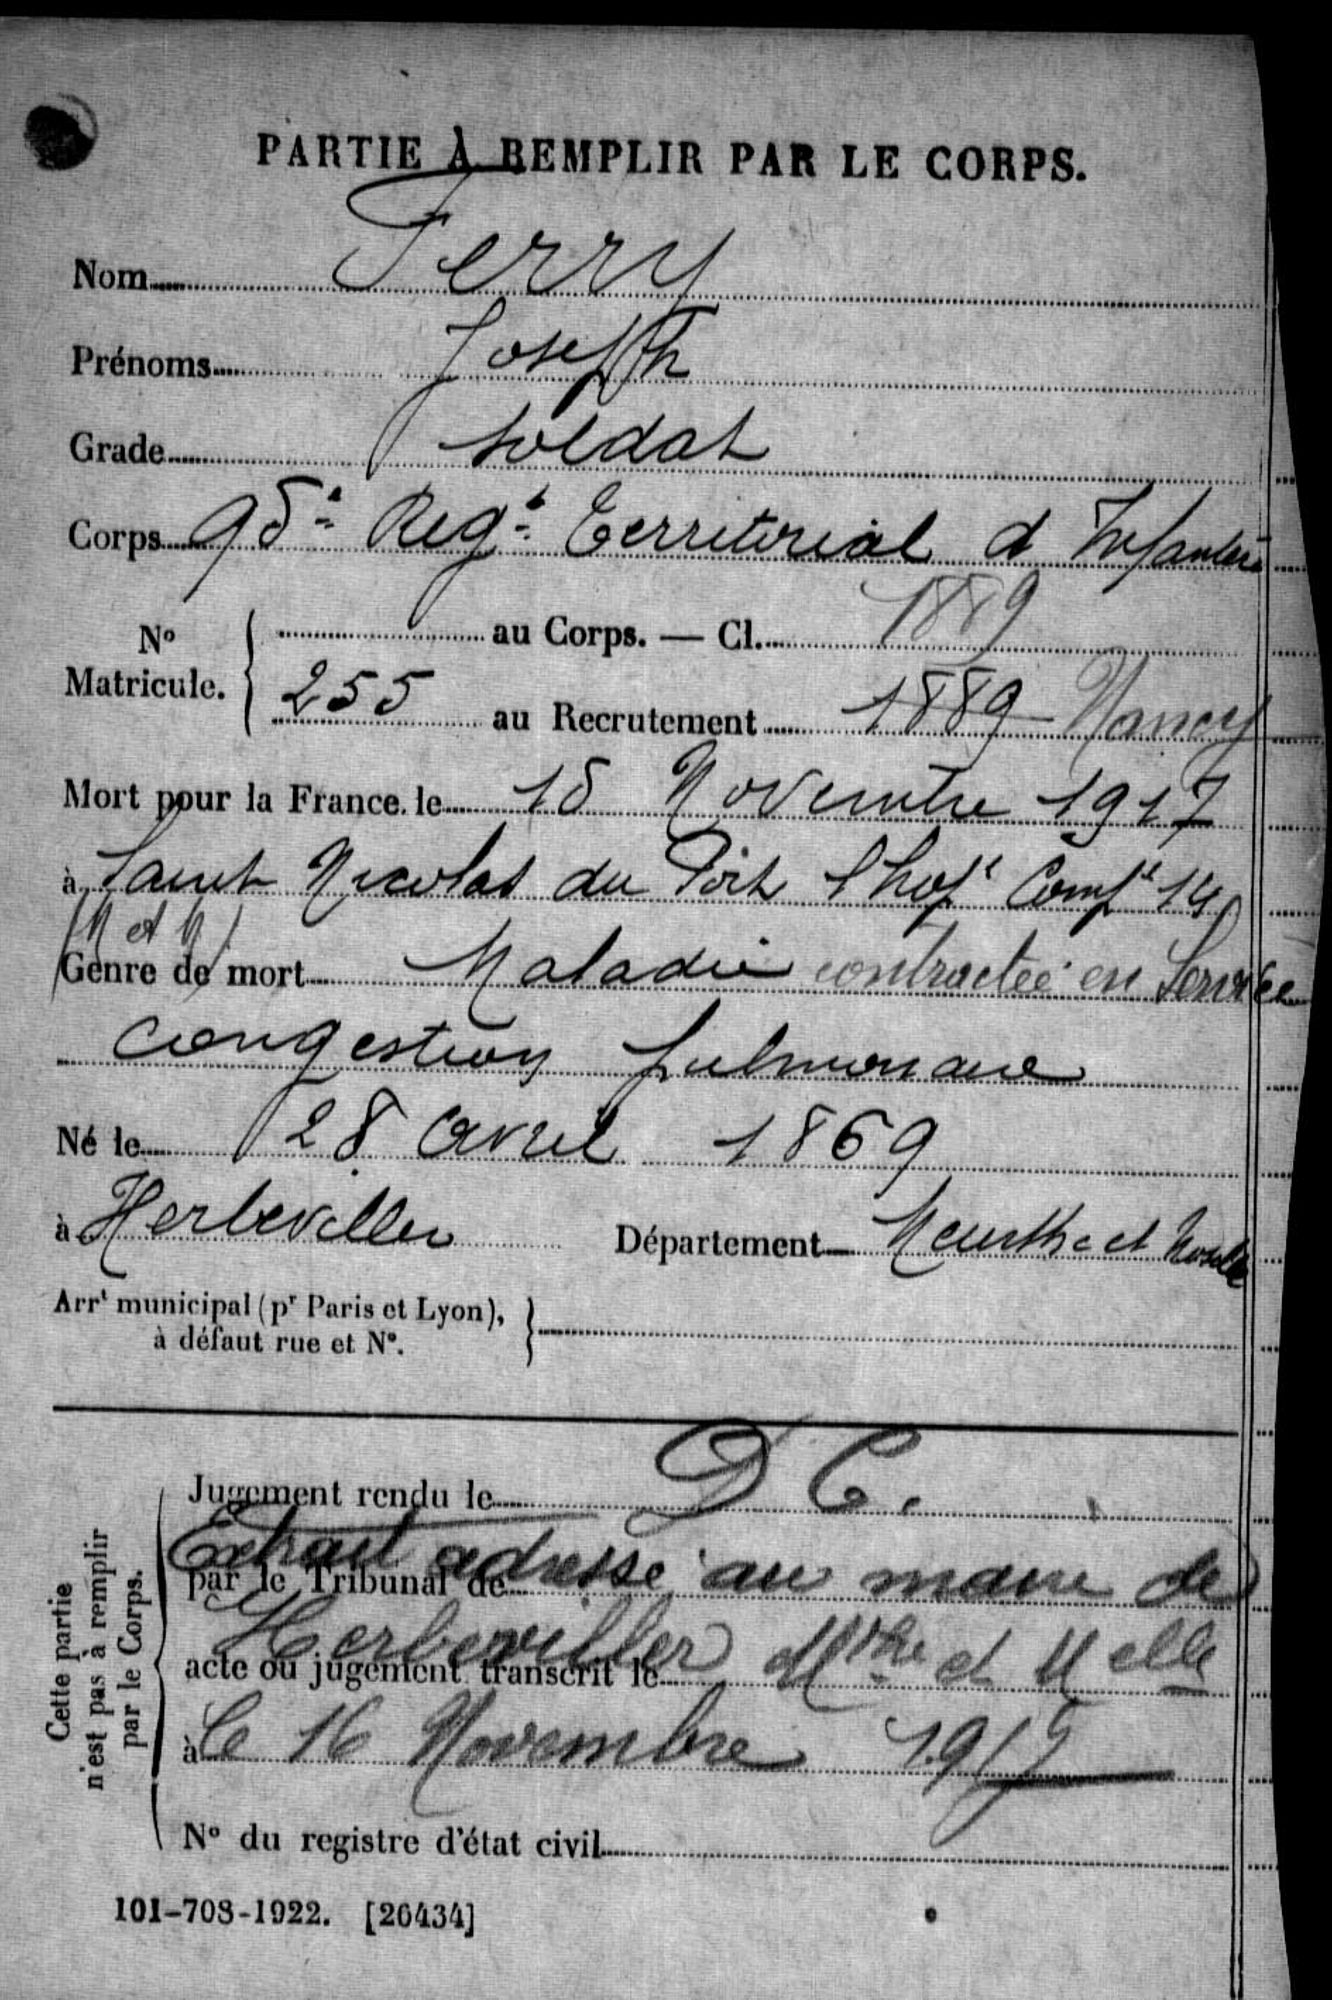 PARTIE À REMPLIR PAR LE CORPS.
Nom Ferry
Prénoms Joseph
Grade soldat
Corps 95e Regt Territorial d Infanterie
No Matricule. au Corps. — Cl. 1889
255 au Recrutement 1889 Nancy
Mort pour la France le 15 Novembre 1917
à Saint Nicolas du Port l'hopl Compre 14
(M et M)
Genre de mort Maladie contractée en Service
congestion pulmonaire
Né le 28 avril 1869
à Herbeviller Département Meurthe et Moselle
Arrt municipal (pr Paris et Lyon),
à défaut rue et No.
Cette partie
n'est pas à remplir
par le Corps.
Jugement rendu le D C.
Extrait adressé au maire de
par le Tribunal de
Herbeviller Mthe et Melle
acte ou jugement transcrit le
à le 16 Novembre 1917
No du registre d'état civil
101-708-1922. [26434]